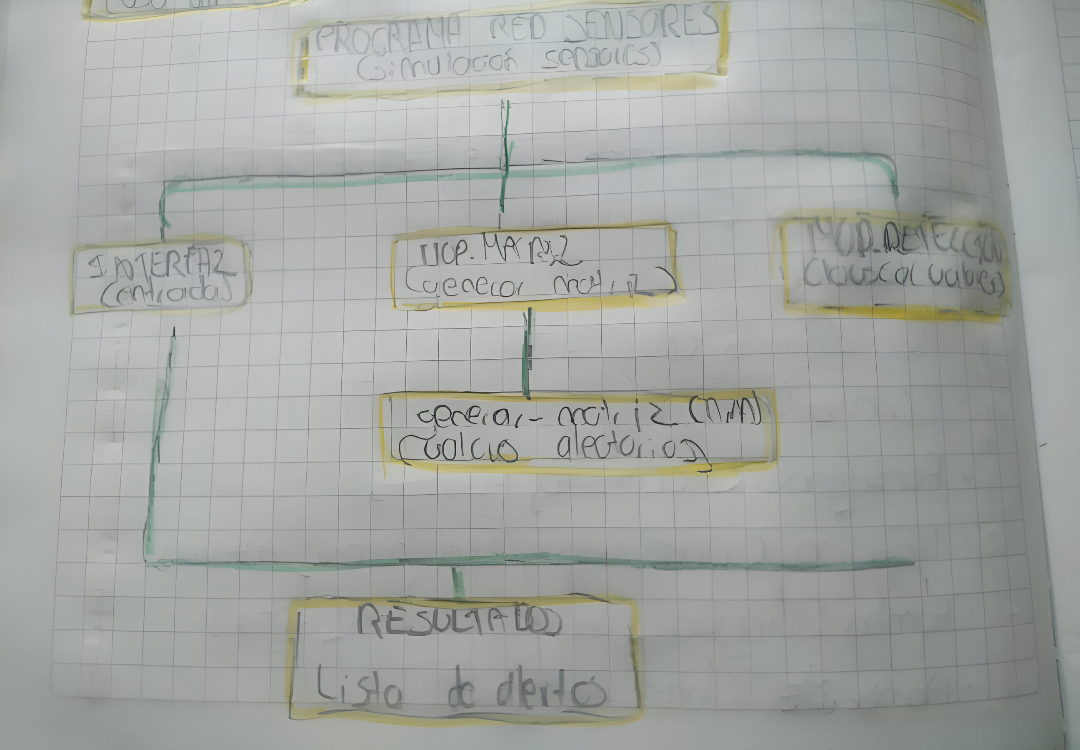 PROGRAMA RED SENSORES
(simulación sensores)
INTERFAZ
(entrada)
MATRIZ
(generar matriz)
MOD. DETECCION
(buscar valores)
generar-matriz (n,m)
aleatorios)
RESULTADOS
Lista de alertas